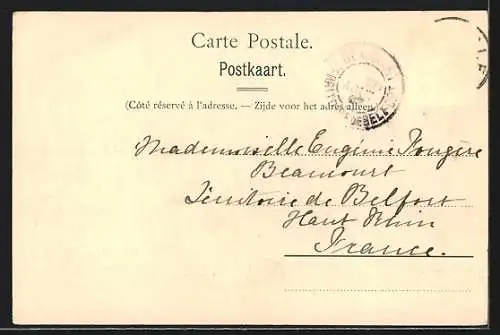 Carte Postale.
Postkaart.
(Côté réservé à l'adresse. — Zijde voor het adres alleen.)
Mademoiselle Eugénie Fougère
Beaucourt
Térritoire de Belfort
Haut Rhin
France.